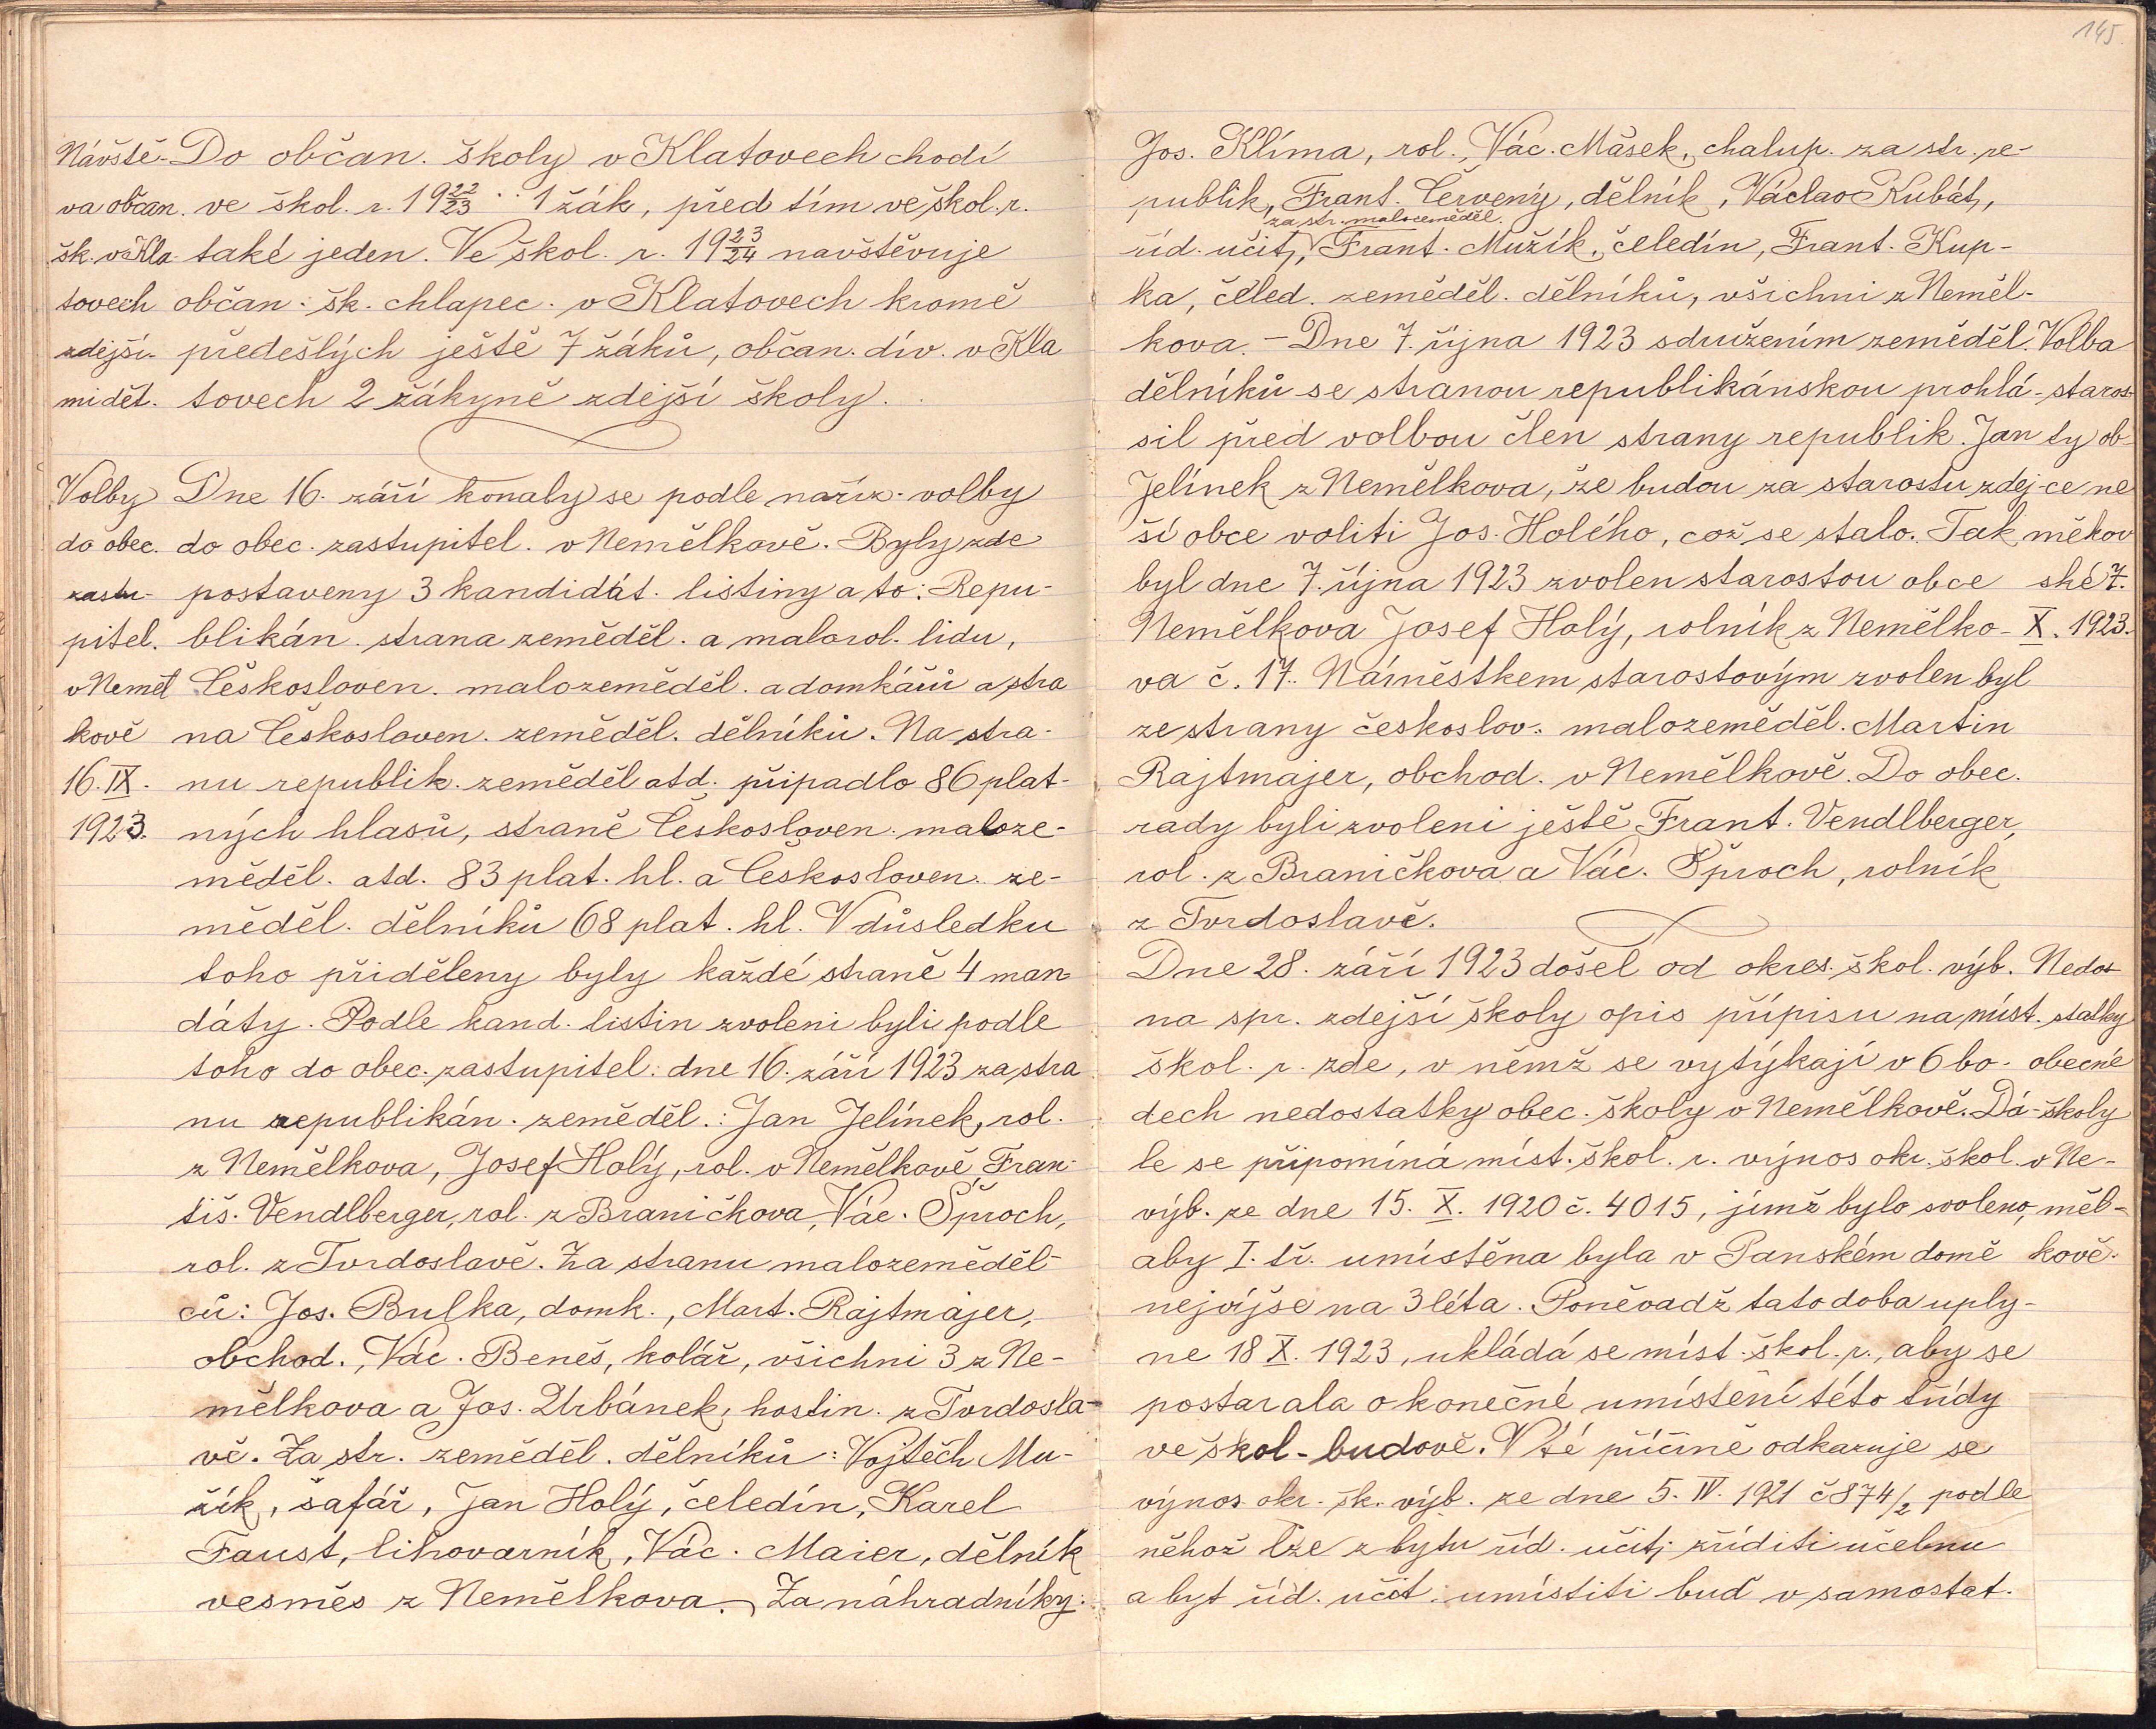 145
Návště- Do občan. školy v Klatovech chodí
va občan. ve škol. r. 19 22/23 .. 1 žák, před tím ve škol. r.
šk. v Kla- také jeden. Ve škol. r. 19 23/24 navštěvuje
tovech občan. šk. chlapec. v Klatovech kromě
zdejší- předešlých ještě 7 žáků, občan. dív. v Kla
mi dět. tovech 2 žákyně zdejší školy.
Volby Dne 16. září konaly se podle naříz. volby
do obec. do obec. zastupitel. v Nemělkově. Byly zde
zastu- postaveny 3 kandidát. listiny a to: Repu-
pitel. blikán. strana zeměděl. a malorol. lidu,
v Neměl Českosloven. malozeměděl. a domkářů a stra
kově na Českosloven. zeměděl. dělníků. Na stra-
16. IX. nu republik. zeměděl atd. připadlo 86 plat-
1923. ných hlasů, straně Českosloven. maloze-
měděl. atd. 83 plat. hl. a Českosloven. ze-
měděl. dělníků 68 plat. hl. V důsledku
toho přiděleny byly každé straně 4 man
dáty. Podle kand. listin zvoleni byli podle
toho do obec. zastupitel. dne 16. září 1923 za stra
nu republikán. zeměděl.: Jan Jelínek, rol.
z Nemělkova, Josef Holý, rol. v Nemělkově, Fran-
tiš. Vendlberger, rol. z Braničkova, Vác. Šproch,
rol. z Tvrdoslavě. Za stranu malozeměděl-
ců: Jos. Bulka, domk., Mart. Rajtmajer,
obchod., Vác. Beneš, kolář, všichni 3 z Ne-
mělkova a Jos. Urbánek, hostin. z Tvrdosla-
vě. Za str. zeměděl. dělníků: Vojtěch Mu-
žík, šafář, Jan Holý, čeledín, Karel
Faust, lihovarník, Vác. Maier, dělník
vesměs z Nemělkova. Za náhradníky:
Jos. Klíma, rol., Vác. Mašek, chalup. za str. re-
publik, Frant. Červený, dělník, Václav Kubát,
za str. malozeměděl.
říd. učit., Frant. Mužík, čeledín, Frant. Kup-
ka, čeled. zeměděl. dělníků, všichni z Neměl-
kova. - Dne 7. října 1923 sdružením zeměděl. Volba
dělníků se stranou republikánskou prohlá- staros-
sil před volbou člen strany republik. Jan ty ob-
Jelínek z Nemělkova, že budou za starostu zdej- ce ne
ší obce voliti Jos. Holého, což se stalo. Tak měkov
byl dne 7. října 1923 zvolen starostou obce ské 7.
Nemělkova Josef Holý, rolník z Nemělko- X. 1923.
va č. 17. Náměstkem starostovým zvolen byl
ze strany českoslov. malozeměděl. Martin
Rajtmajer, obchod. v Nemělkově. Do obec.
rady byli zvoleni ještě Frant. Vendlberger,
rol. z Braničkova a Vác. Šproch, rolník
z Tvrdoslavě.
Dne 28. září 1923 došel od okres. škol. výb. Nedos
na spr. zdejší školy opis přípisu na míst. statky
škol. r. zde, v němž se vytýkají v 6 bo- obecné
dech nedostatky obec. školy v Nemělkově. Dá- školy
le se připomíná míst. škol. r. výnos okr. škol. v Ne-
výb. ze dne 15. X. 1920 č. 4015, jímž bylo svoleno, měl-
aby I. tř. umístěna byla v Panském domě kově.
nejvýše na 3 léta. Poněvadž tato doba uply-
ne 18 X. 1923, ukládá se míst. škol. r., aby se
postarala o konečné umístění této třídy
ve škol. budově. V té příčině odkazuje se
výnos okr. šk. výb. ze dne 5. IV. 1921 č 874/2 podle
něhož lze z bytu říd. učit. zříditi učebnu
a byt říd. učit. umístiti buď v samostat.